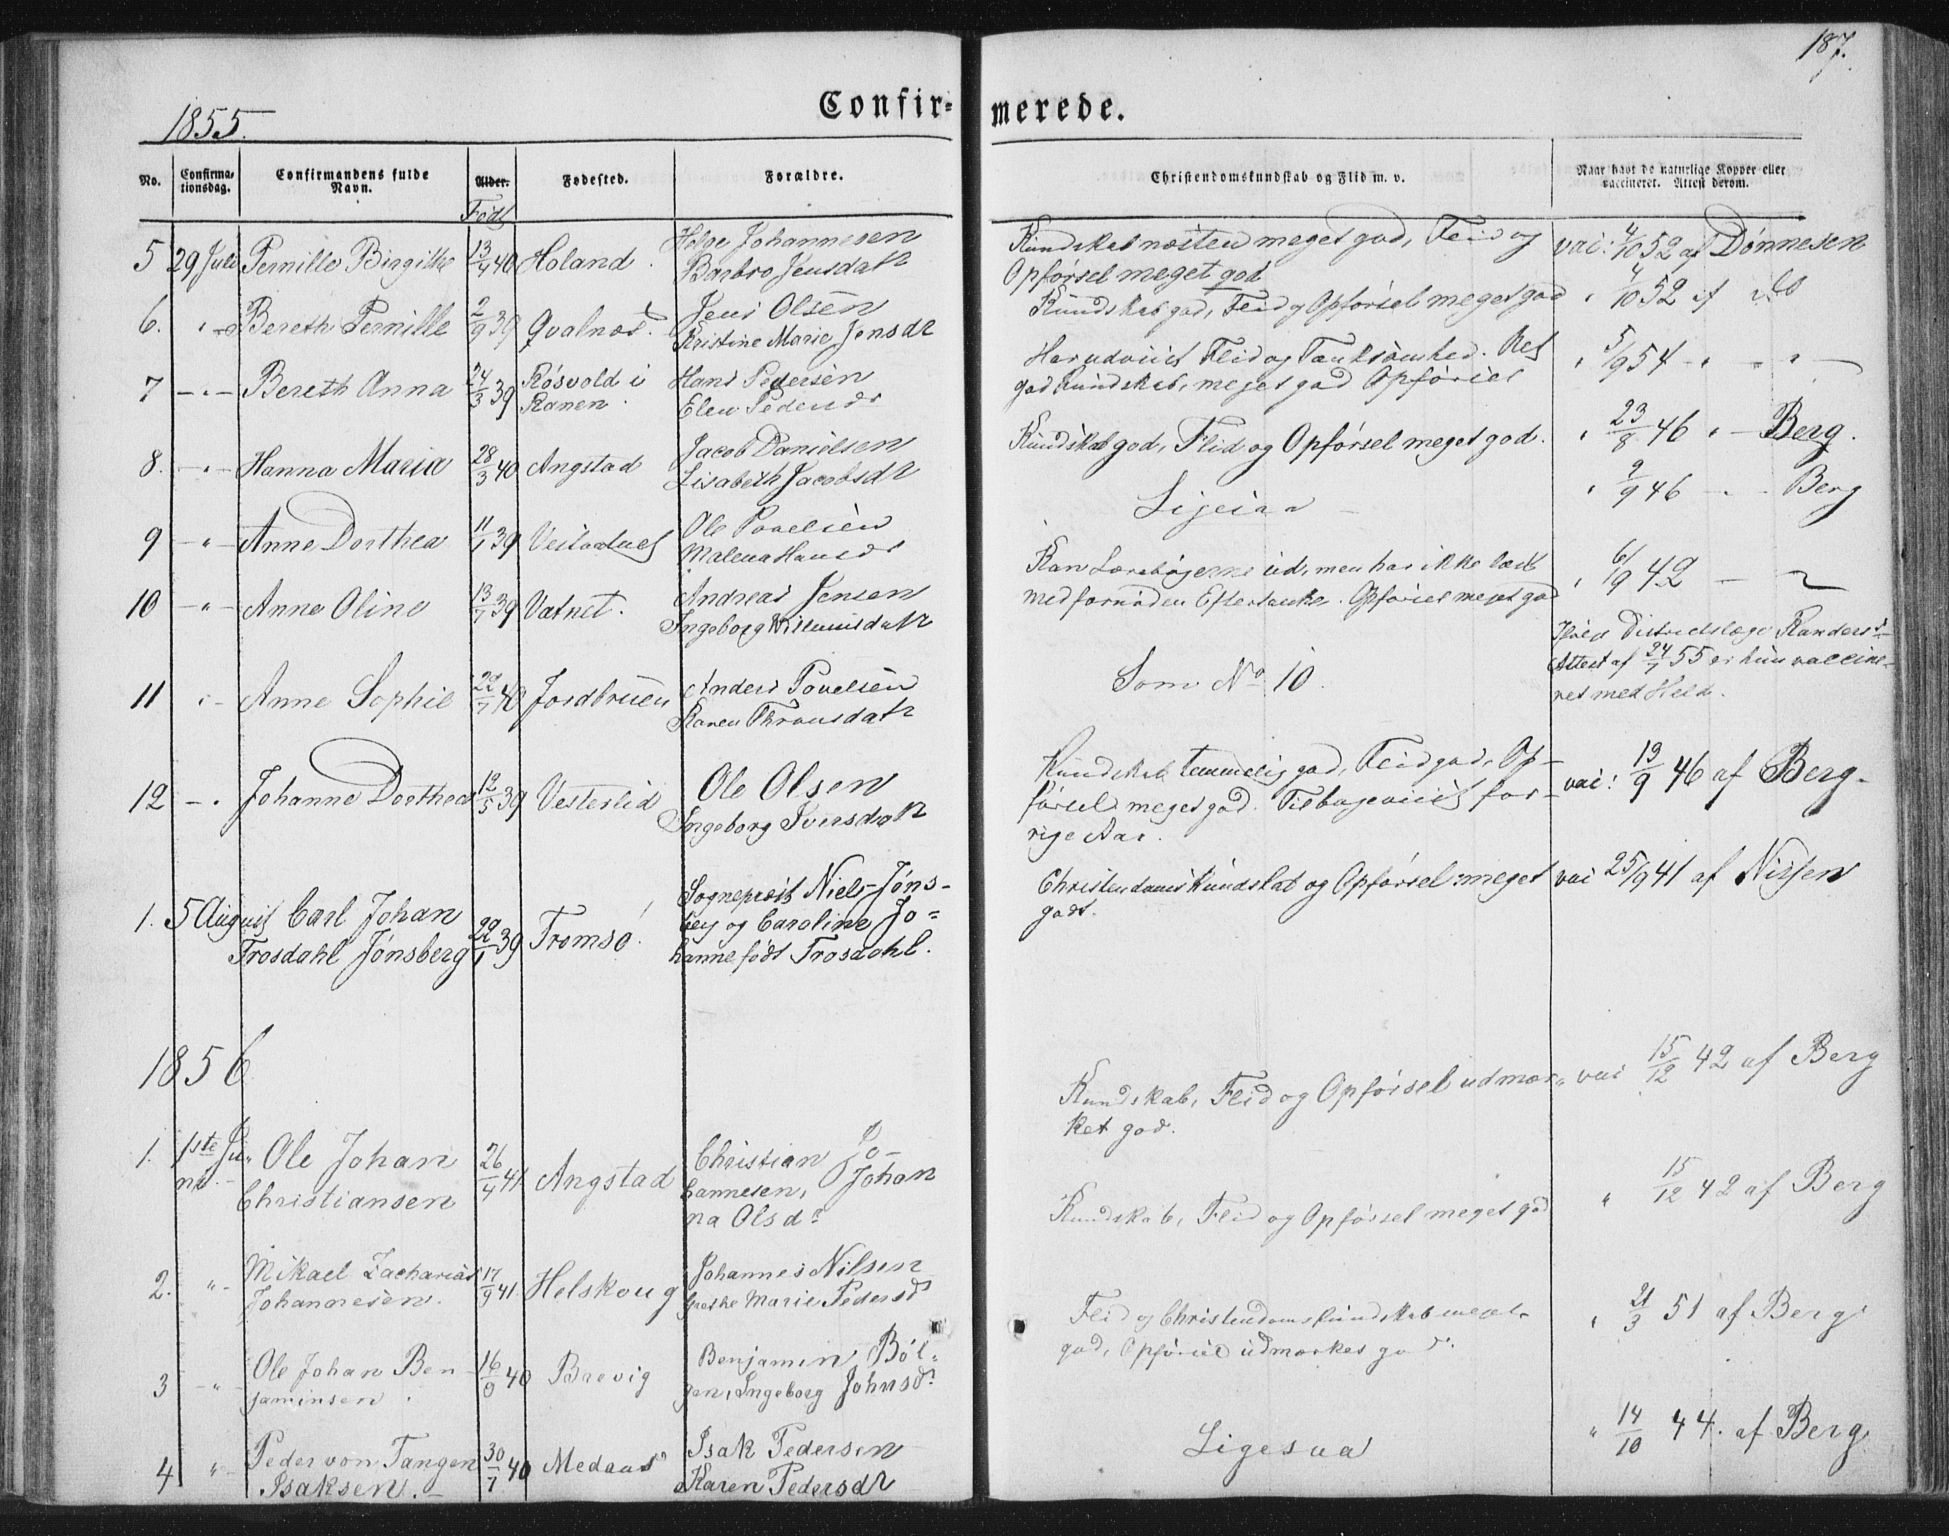 187.
1855.
Confir-
merede.
No.
Confirma-
tionsdag.
Confirmandens fulde
Navn.
Alder.
Født
Fødested.
Forældre.
Christendomskundskab og Flid m. v.
Naar havt de naturlige Kopper eller
vaccineret. Attest derom.
5 29 Juli Pernille Birgitte 13/4 40 Holand.
Helge Johannesen
Barbro Jensdatr
Kundskab næsten meget god, Flid og
Opførsel meget god
vac: 4/10 52 af Dønnesen
6. " Bereth Pernille 2/9 39 Qvalnæs.
Jens Olsen
Kristine Marie Jensdr
Kundskab god, Flid og Opførsel meget god
" 4/10 52 af do
7 - " - Bereth Anna 24/3 39 Røsvold i
Ranen.
Hans Pedersen
Elen Pedersdr
Har udviist Flid og Tænksomhed. Ret
god Kundskab, meget god Opførsel
" 5/9 54 - " - " -
8. - " - Hanna Maria 28/3 40 Angstad
Jacob Danielsen
Lisabeth Jacobsdr
Kundskab god, Flid og Opførsel meget god.
" 23/8 46 " - Berg.
9 - " - Anne Dorthea 11/1 39
Ole Povelsen
Malena Hansdr
Ligesaa -
" 2/9 46 - - Berg
10 - " - Anne Oline 13/7 39 Vatnet.
Andreas Jensen
Ingeborg Willumsdatr
Kan Lærebøgerne ud, men har ikke læst
med fornøden Eftertanke. Opførsel meget god
" 6/9 42 -
11 " - Anne Sophie 22/7 40 Jordbruen
Anders Povelsen
Karen Thronsdatr
Som No 10.
Ifølge Distrectslæge Randers's
Attest af 24/7 55 er hun vaccine-
ret med Held.
12 - " Johanne Dorthea 12/5 39 Vesterlid
Ole Olsen
Ingeborg Iversdatr
Kundskab temmelig god, Flid god, Op-
førsel meget god. Tilbageviist for-
rige Aar.
vac: 19/9 46 af Berg.
1. 5 August Carl Johan
Trosdahl Jønsberg 22/1 39 Tromsø.
Sogneprest Niels Jøns-
berg og Caroline Jo-
hanne født Trosdahl.
Christendomskundskab og Opførsel meget
godt.
vac 25/9 41 af Nissen
1856
1. 1ste Ju-
ni. - Ole Johan
Christiansen 26/4 41 Angstad
Christian Jo-
hannesen, Johan
na Olsdr
Kundskab, Flid og Opførsel udmær-
ket god.
vac 15/12 42 af Berg
2. " - Mikael Zacharias
Johannesen. 17/9 41 Helskoug
Johannes Nilsen
Grethe Marie Pedersd
Kundskab, Flid og Opførsel meget god
" 15/12 42 af Berg
3 - " - Ole Johan Ben
jaminsen. 16/9 40 Brevig
Benjamin Böt-
ger, Ingeborg Johnsdr
Flid og Christendomskundskab meget
god, Opførsel udmærket god.
" 21/3 51 af Berg
4 " - Peder von Tangen
Isaksen. - 30/7 40 Medaas
Isak Pedersen
Karen Pedersdr
Ligesaa
" 14/10 44. af Berg